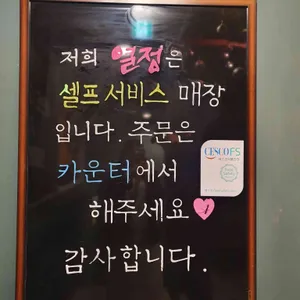 저희 열정은
셀프 서비스 매장
입니다. 주문은
카운터에서
해주세요
감사합니다.
CESCO FS